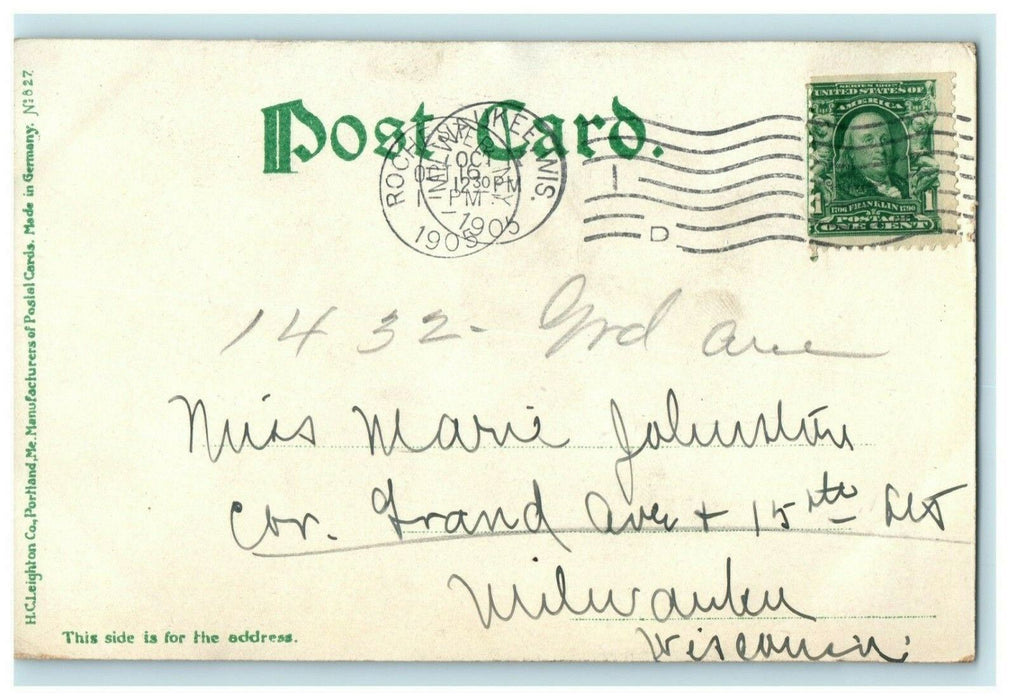 H.C.Leighton Co., Portland, Me. Manufacturers of Postal Cards. Made in Germany. No 827
Post Card.
MILWAUKEE, WIS.
OCT
16
1230 PM
1905
ROCH
PM
1905
D
SERIES 1902
UNITED STATES OF
AMERICA
1706 FRANKLIN 1790
1 POSTAGE 1
ONE CENT
1432 - Grd Ave
Miss Marie Johnston
Cor. Grand Ave + 15th St
Milwaukee
Wisconsin.
This side is for the address.